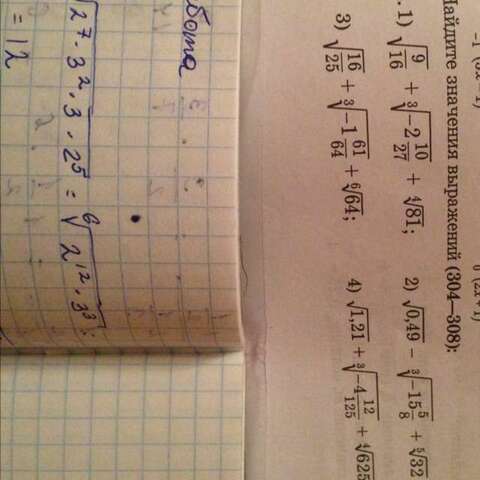 Найдите значения выражений (304—308):
. 1) √(9/16) + ∛(-2 10/27) + ⁴√81; 2) √0,49 − ∛(-15 5/8) + ⁵√32
3) √(16/25) + ∛(-1 61/64) + ⁶√64; 4) √1,21 + ∛(-4 12/125) + ⁴√625
бота
√2⁷·3²·3·2⁵ = ⁶√2¹²·3³
= 12